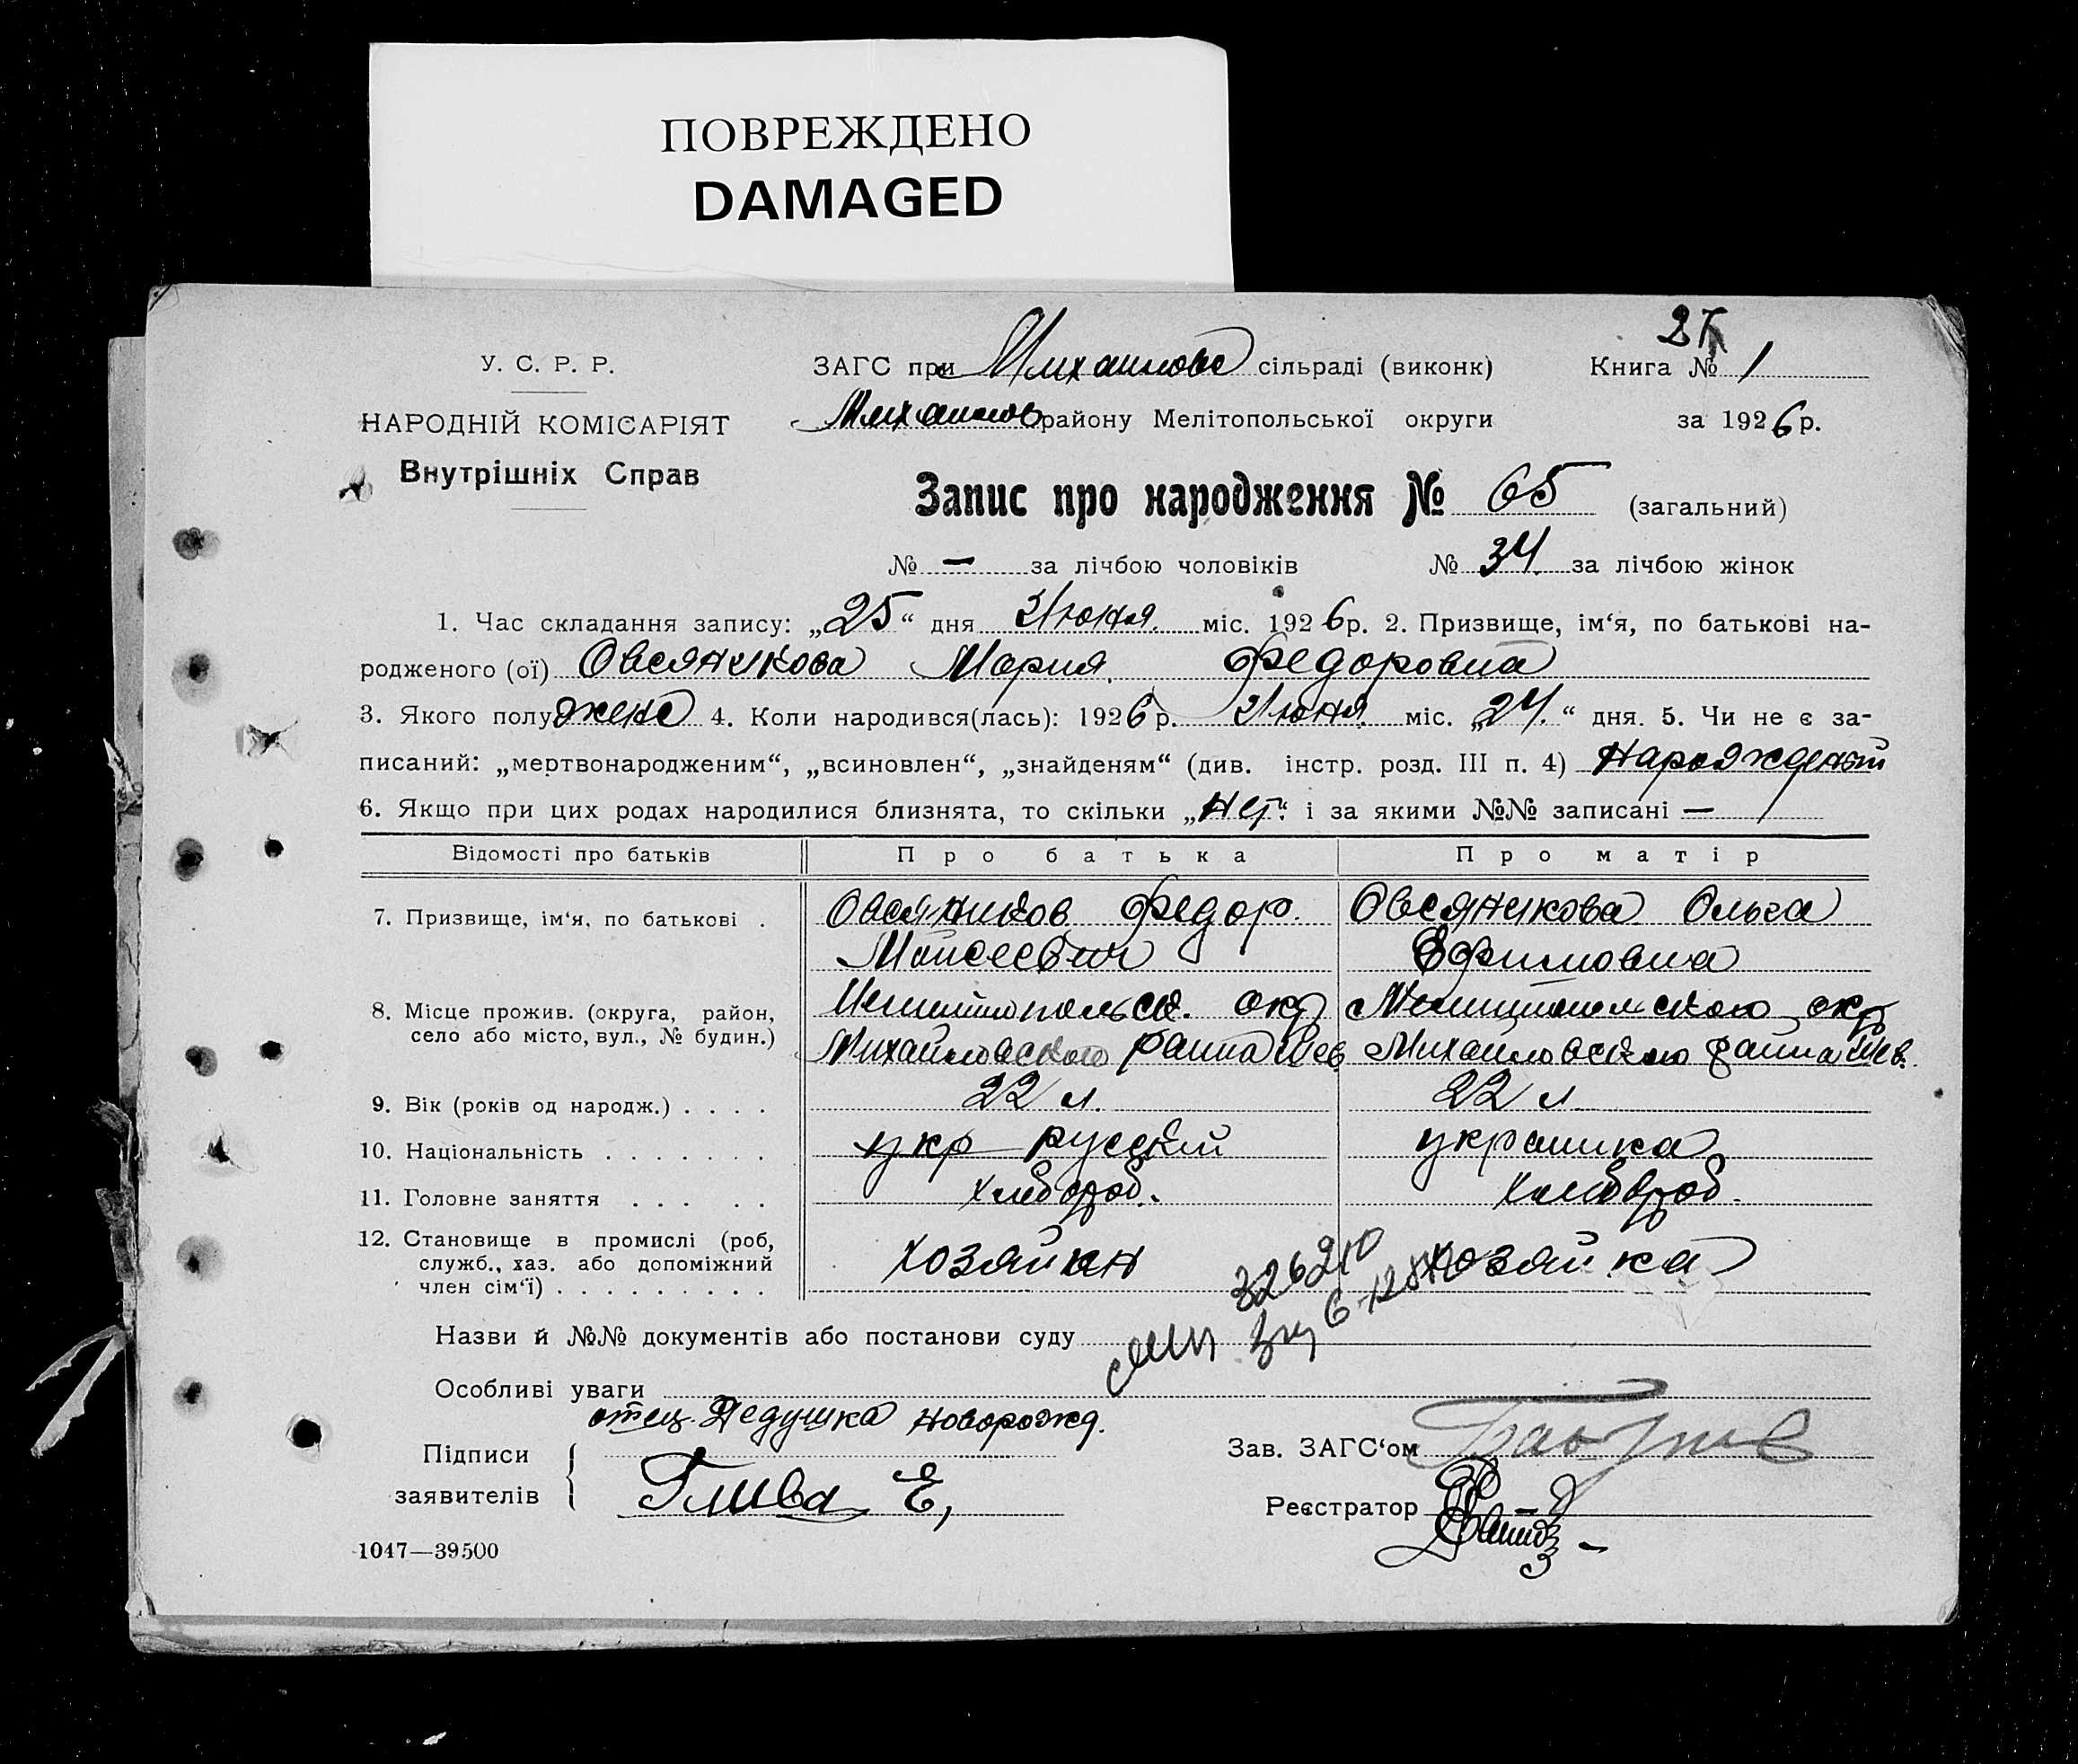 ПОВРЕЖДЕНО
DAMAGED
2
У. С. Р. Р.
ЗАГС при Михайлово сільраді (виконк)
Книга № 1
НАРОДНІЙ КОМІСАРІЯТ
Михайлов району Мелітопольської округи
за 1926 р.
Внутрішніх Справ
Запис про народження № 65 (загальний)
№ — за лічбою чоловіків № 34. за лічбою жінок
1. Час складання запису: „25“ дня Июня. міс. 1926 р. 2. Призвище, ім‘я, по батькові на-
родженого (ої) Овсяникова Мария. Федоровна
3. Якого полу жене 4. Коли народився(лась): 1926 р. Июня міс. „24.“ дня. 5. Чи не є за-
писаний: „мертвонародженим“, „всиновлен“, „знайденям“ (див. інстр. розд. III п. 4)
6. Якщо при цих родах народилися близнята, то скільки „Нет“ і за якими №№ записані —
Відомості про батьків
Про батька
Про матір
7. Призвище, ім‘я, по батькові .
Овсяников Федор.
Моисеевич
Овсяникова Ольга
Ефимовна
8. Місце прожив. (округа, район,
село або місто, вул., № будин.)
Мелитопольск. окр
Михайловского района Шев
Мелитопольского окр
Михайловского района Шев.
9. Вік (років од народж.) . . . .
22 л.
22 л
10. Національність . . . . . . .
укр русский
украинка
11. Головне заняття . . . . .
хлебороб.
хлебороб.
12. Становище в промислі (роб,
служб., хаз. або допоміжний
член сім‘ї) . . . . . . . . .
хозяин
хозяйка
326210
Назви й №№ документів або постанови суду
Особливі уваги
отец. Дедушка новорожд.
Підписи
заявителів
Глива Е,
Зав. ЗАГС‘ом
Реєстратор
1047—39500